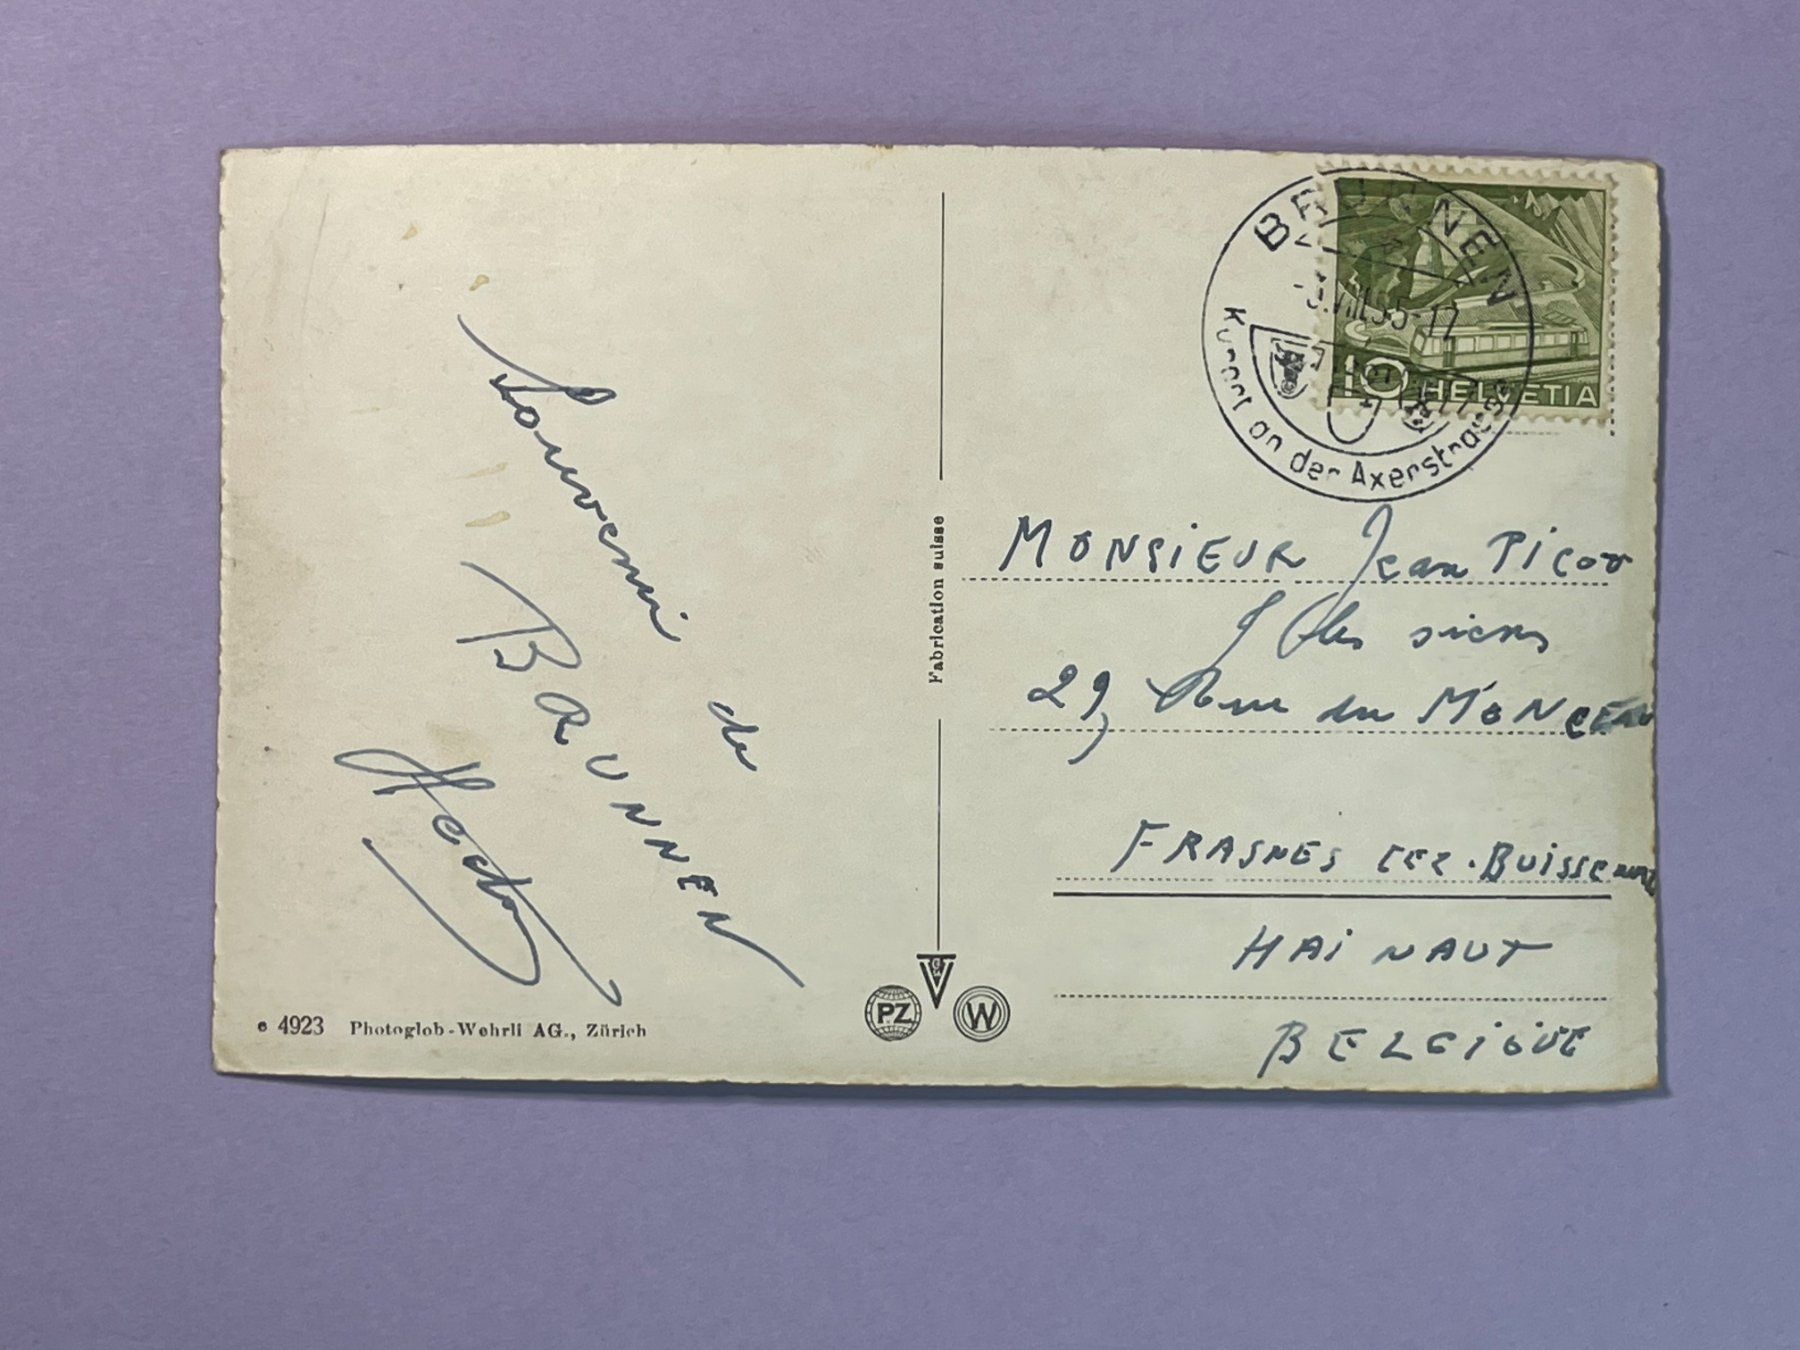 Souvenir de
BRUNNEN
Hector
e 4923 Photoglob-Wehrli AG., Zürich
Fabrication suisse
PZ
W
BRUNNEN
VIII.55-17
Kurort an der Axenstrasse
10 HELVETIA
MONSIEUR Jean PICOT
& les siens
29, Rue du MONCEAU
FRASNES LEZ-BUISSENAL
HAINAUT
BELGIQUE